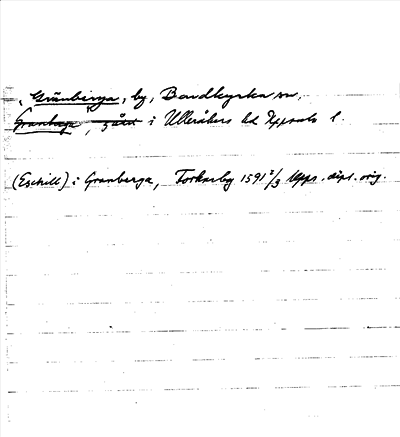 Gränberga, by, Bondkyrka sn,
Granberga, gård i Ulleråkers hd Uppsala l.
(Eschill) i Granberga, Torkarby 1591 2/3 Upps. dipl. orig.